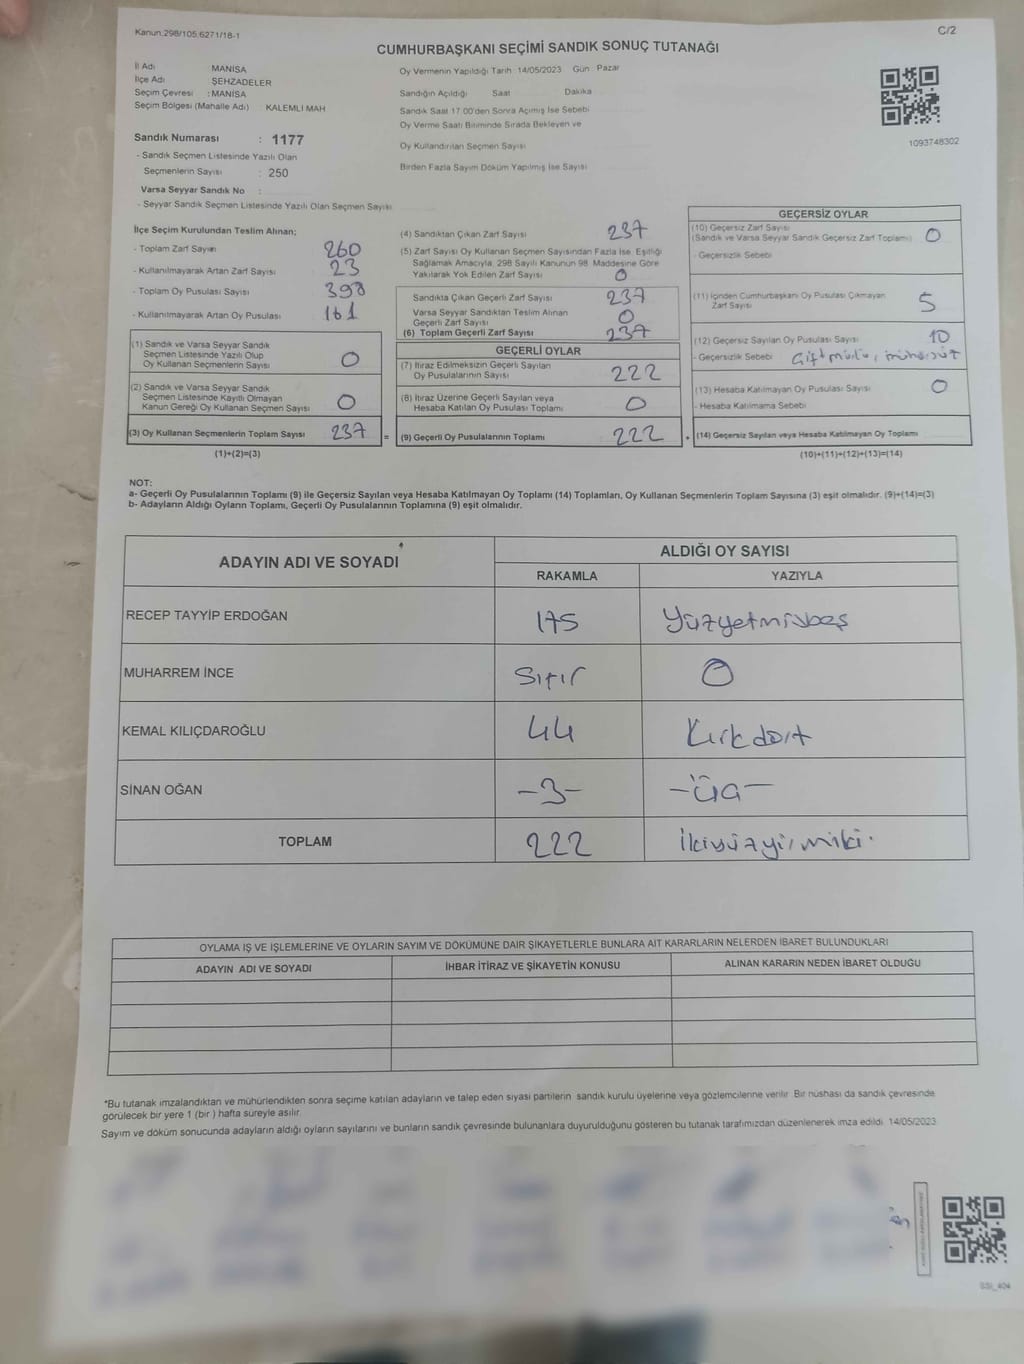 Kanun.298/105.6271/18-1
C/2
CUMHURBAŞKANI SEÇİMİ SANDIK SONUÇ TUTANAĞI
İl Adı MANİSA
İlçe Adı ŞEHZADELER
Seçim Çevresi : MANİSA
Seçim Bölgesi (Mahalle Adı) : KALEMLİ MAH
Sandık Numarası : 1177
- Sandık Seçmen Listesinde Yazılı Olan
Seçmenlerin Sayısı : 250
Varsa Seyyar Sandık No :
- Seyyar Sandık Seçmen Listesinde Yazılı Olan Seçmen Sayısı
Oy Vermenin Yapıldığı Tarih : 14/05/2023 Gün : Pazar
Sandığın Açıldığı Saat Dakika
Sandık Saat 17:00'den Sonra Açımış İse Sebebi
Oy Verme Saati Bitiminde Sırada Bekleyen ve
Oy Kullandırılan Seçmen Sayısı
Birden Fazla Sayım Döküm Yapılmış İse Sayısı
1093748302
İlçe Seçim Kurulundan Teslim Alınan;
- Toplam Zarf Sayısı 260
- Kullanılmayarak Artan Zarf Sayısı 23
- Toplam Oy Pusulası Sayısı 398
- Kullanılmayarak Artan Oy Pusulası 161
(1) Sandık ve Varsa Seyyar Sandık
Seçmen Listesinde Yazılı Olup
Oy Kullanan Seçmenlerin Sayısı 0
(2) Sandık ve Varsa Seyyar Sandık
Seçmen Listesinde Kayıtlı Olmayan
Kanun Gereği Oy Kullanan Seçmen Sayısı 0
(3) Oy Kullanan Seçmenlerin Toplam Sayısı 237 =
(1)+(2)=(3)
(4) Sandıktan Çıkan Zarf Sayısı 237
(5) Zarf Sayısı Oy Kullanan Seçmen Sayısından Fazla İse, Eşitliği
Sağlamak Amacıyla, 298 Sayılı Kanunun 98. Maddesine Göre
Yakılarak Yok Edilen Zarf Sayısı 0
Sandıkta Çıkan Geçerli Zarf Sayısı 237
Varsa Seyyar Sandıktan Teslim Alınan
Geçerli Zarf Sayısı 0
(6) Toplam Geçerli Zarf Sayısı 237
GEÇERLİ OYLAR
(7) İtiraz Edilmeksizin Geçerli Sayılan
Oy Pusulalarının Sayısı 222
(8) İtiraz Üzerine Geçerli Sayılan veya
Hesaba Katılan Oy Pusulası Toplamı 0
(9) Geçerli Oy Pusulalarının Toplamı 222 +
GEÇERSİZ OYLAR
(10) Geçersiz Zarf Sayısı
(Sandık ve Varsa Seyyar Sandık Geçersiz Zarf Toplamı) 0
- Geçersizlik Sebebi
(11) İçinden Cumhurbaşkanı Oy Pusulası Çıkmayan
Zarf Sayısı 5
(12) Geçersiz Sayılan Oy Pusulası Sayısı 10
- Geçersizlik Sebebi Çift mühür, mühürsüz
(13) Hesaba Katılmayan Oy Pusulası Sayısı 0
- Hesaba Katılmama Sebebi
(14) Geçersiz Sayılan veya Hesaba Katılmayan Oy Toplamı
(10)+(11)+(12)+(13)=(14)
NOT:
a- Geçerli Oy Pusulalarının Toplamı (9) ile Geçersiz Sayılan veya Hesaba Katılmayan Oy Toplamı (14) Toplamları, Oy Kullanan Seçmenlerin Toplam Sayısına (3) eşit olmalıdır. (9)+(14)=(3)
b- Adayların Aldığı Oyların Toplamı, Geçerli Oy Pusulalarının Toplamına (9) eşit olmalıdır.
ADAYIN ADI VE SOYADI ALDIĞI OY SAYISI
RAKAMLA YAZIYLA
RECEP TAYYİP ERDOĞAN 175 Yüzyetmişbeş
MUHARREM İNCE Sıfır 0
KEMAL KILIÇDAROĞLU 44 Kırkdört
SİNAN OĞAN -3- -üç-
TOPLAM 222 İkiyüzyirmiki.
OYLAMA İŞ VE İŞLEMLERİNE VE OYLARIN SAYIM VE DÖKÜMÜNE DAİR ŞİKAYETLERLE BUNLARA AİT KARARLARIN NELERDEN İBARET BULUNDUKLARI
ADAYIN ADI VE SOYADI İHBAR İTİRAZ VE ŞİKAYETİN KONUSU ALINAN KARARIN NEDEN İBARET OLDUĞU
*Bu tutanak imzalandıktan ve mühürlendikten sonra seçime katılan adayların ve talep eden siyasi partilerin sandık kurulu üyelerine veya gözlemcilerine verilir. Bir nüshası da sandık çevresinde
görülecek bir yere 1 (bir ) hafta süreyle asılır.
Sayım ve döküm sonucunda adayların aldığı oyların sayılarını ve bunların sandık çevresinde bulunanlara duyurulduğunu gösteren bu tutanak tarafımızdan düzenlenerek imza edildi. 14/05/2023
SSİ_404